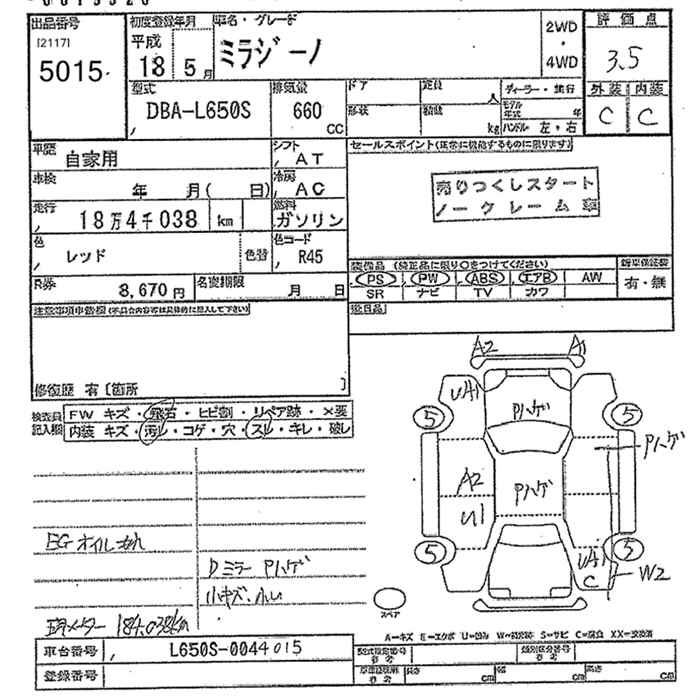 出品番号 初度登録年月 車名・グレード 2WD・4WD 評価点
[2117] 5015 平成18 5月 ミラジーノ 3.5
型式 排気量 ドア 定員 人 ディーラー・並行 外装 内装
DBA-L650S 660 CC 形状 積載 kg モデル年式 年 ハンドル 左・右 C C
車歴 自家用 シフト AT セールスポイント(正常に機能するものに限ります)
車検 年 月( 日) 冷房 AC 売りつくしスタート
走行 18万4千038 km 燃料 ガソリン ノークレーム車
色 レッド 色替 色コード R45 装備品(純正品に限り○をつけてください) 新車保証書
R券 8,670円 名変期限 月 日 PS PW ABS エアB AW 有・無
SR ナビ TV カワ
注意事項申告欄(不具合内容等は具体的に記入して下さい) 後日品
修復歴 有 [箇所 ]
検査員記入欄 FW キズ・飛石・ヒビ割・リペア跡・×要
内装 キズ・汚れ・コゲ・穴・スレ・キレ・破レ
A2 A1
UA1 Pハゲ
5 5
Pハゲ
A2 Pハゲ
U1
EGオイルもれ
5 UA1 5
C W2
Dミラー Pハゲ
小キズ・小凹
現メーター 184,038km スペア
A=キズ E=エクボ U=凹み W=補修跡 S=サビ C=腐食 XX=交換済
車台番号 L650S-0044015 型式指定番号 参考 類別区分番号 参考
登録番号 長さ cm 幅 cm 高さ cm